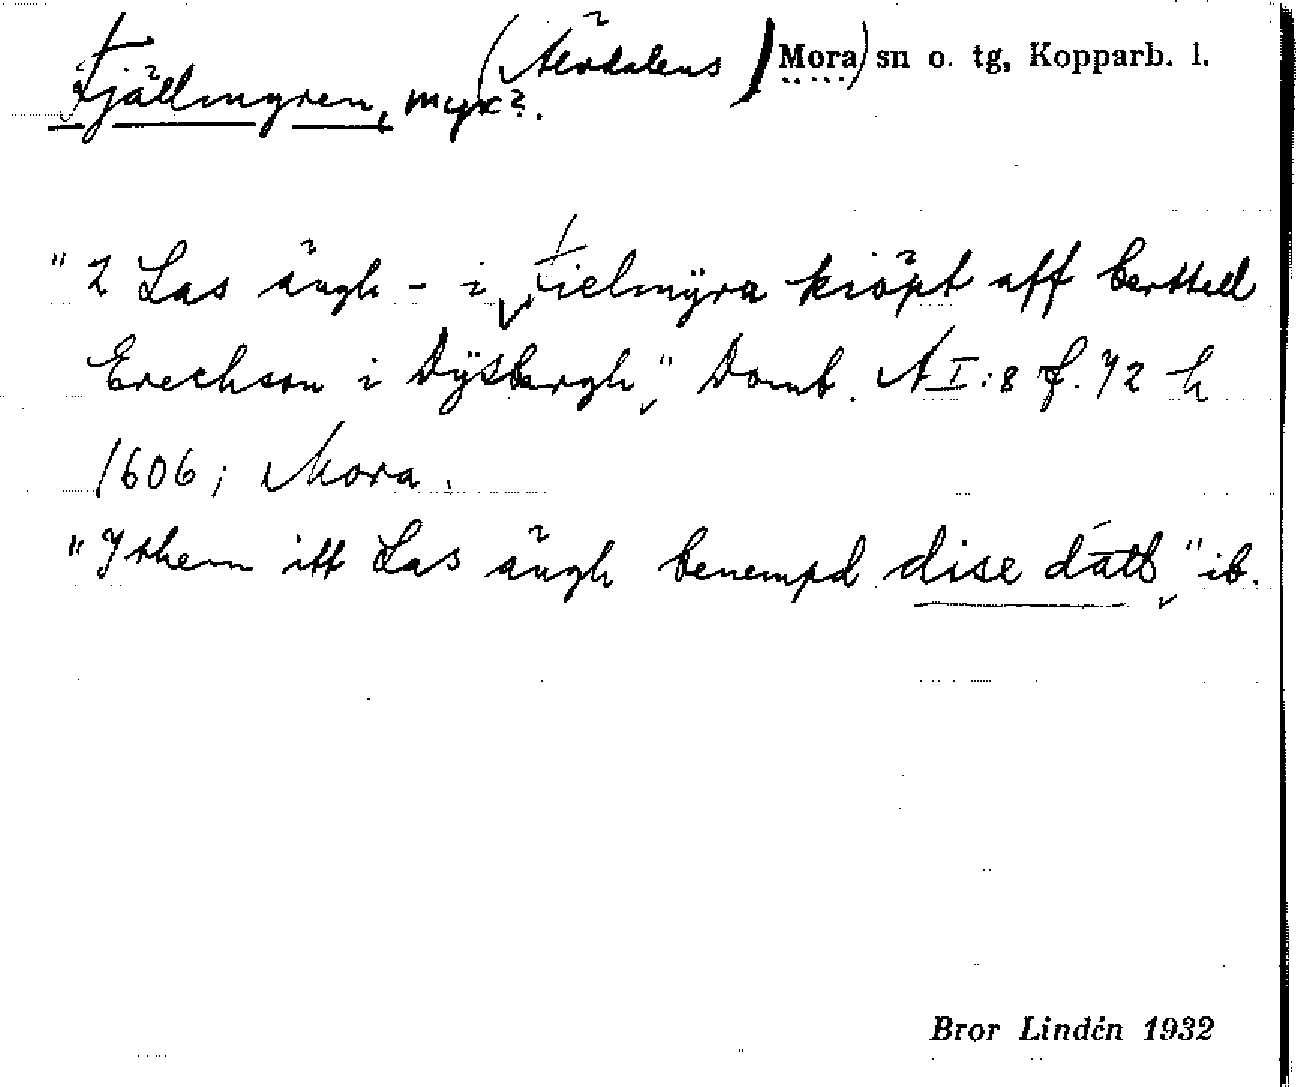 Fjällmyren, myr?. (Älvdalens) Mora) sn o. tg, Kopparb. l.
"2 Las ängh - i Fielmÿra kiöpt aff berttell
Erechson i Dÿsbergh," Domb. A I:8 f. 72 h
1606; Mora.
"Ithem itt Las ängh benempd dise dätt," ib.
Bror Lindén 1932